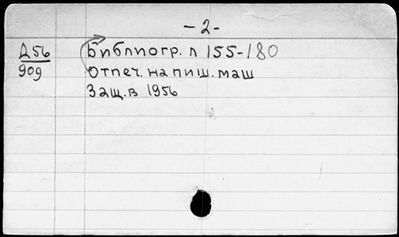 -2-
Д56 Библиогр. л 155-180
909 Отпеч. на пиш. маш
Защ. в 1956